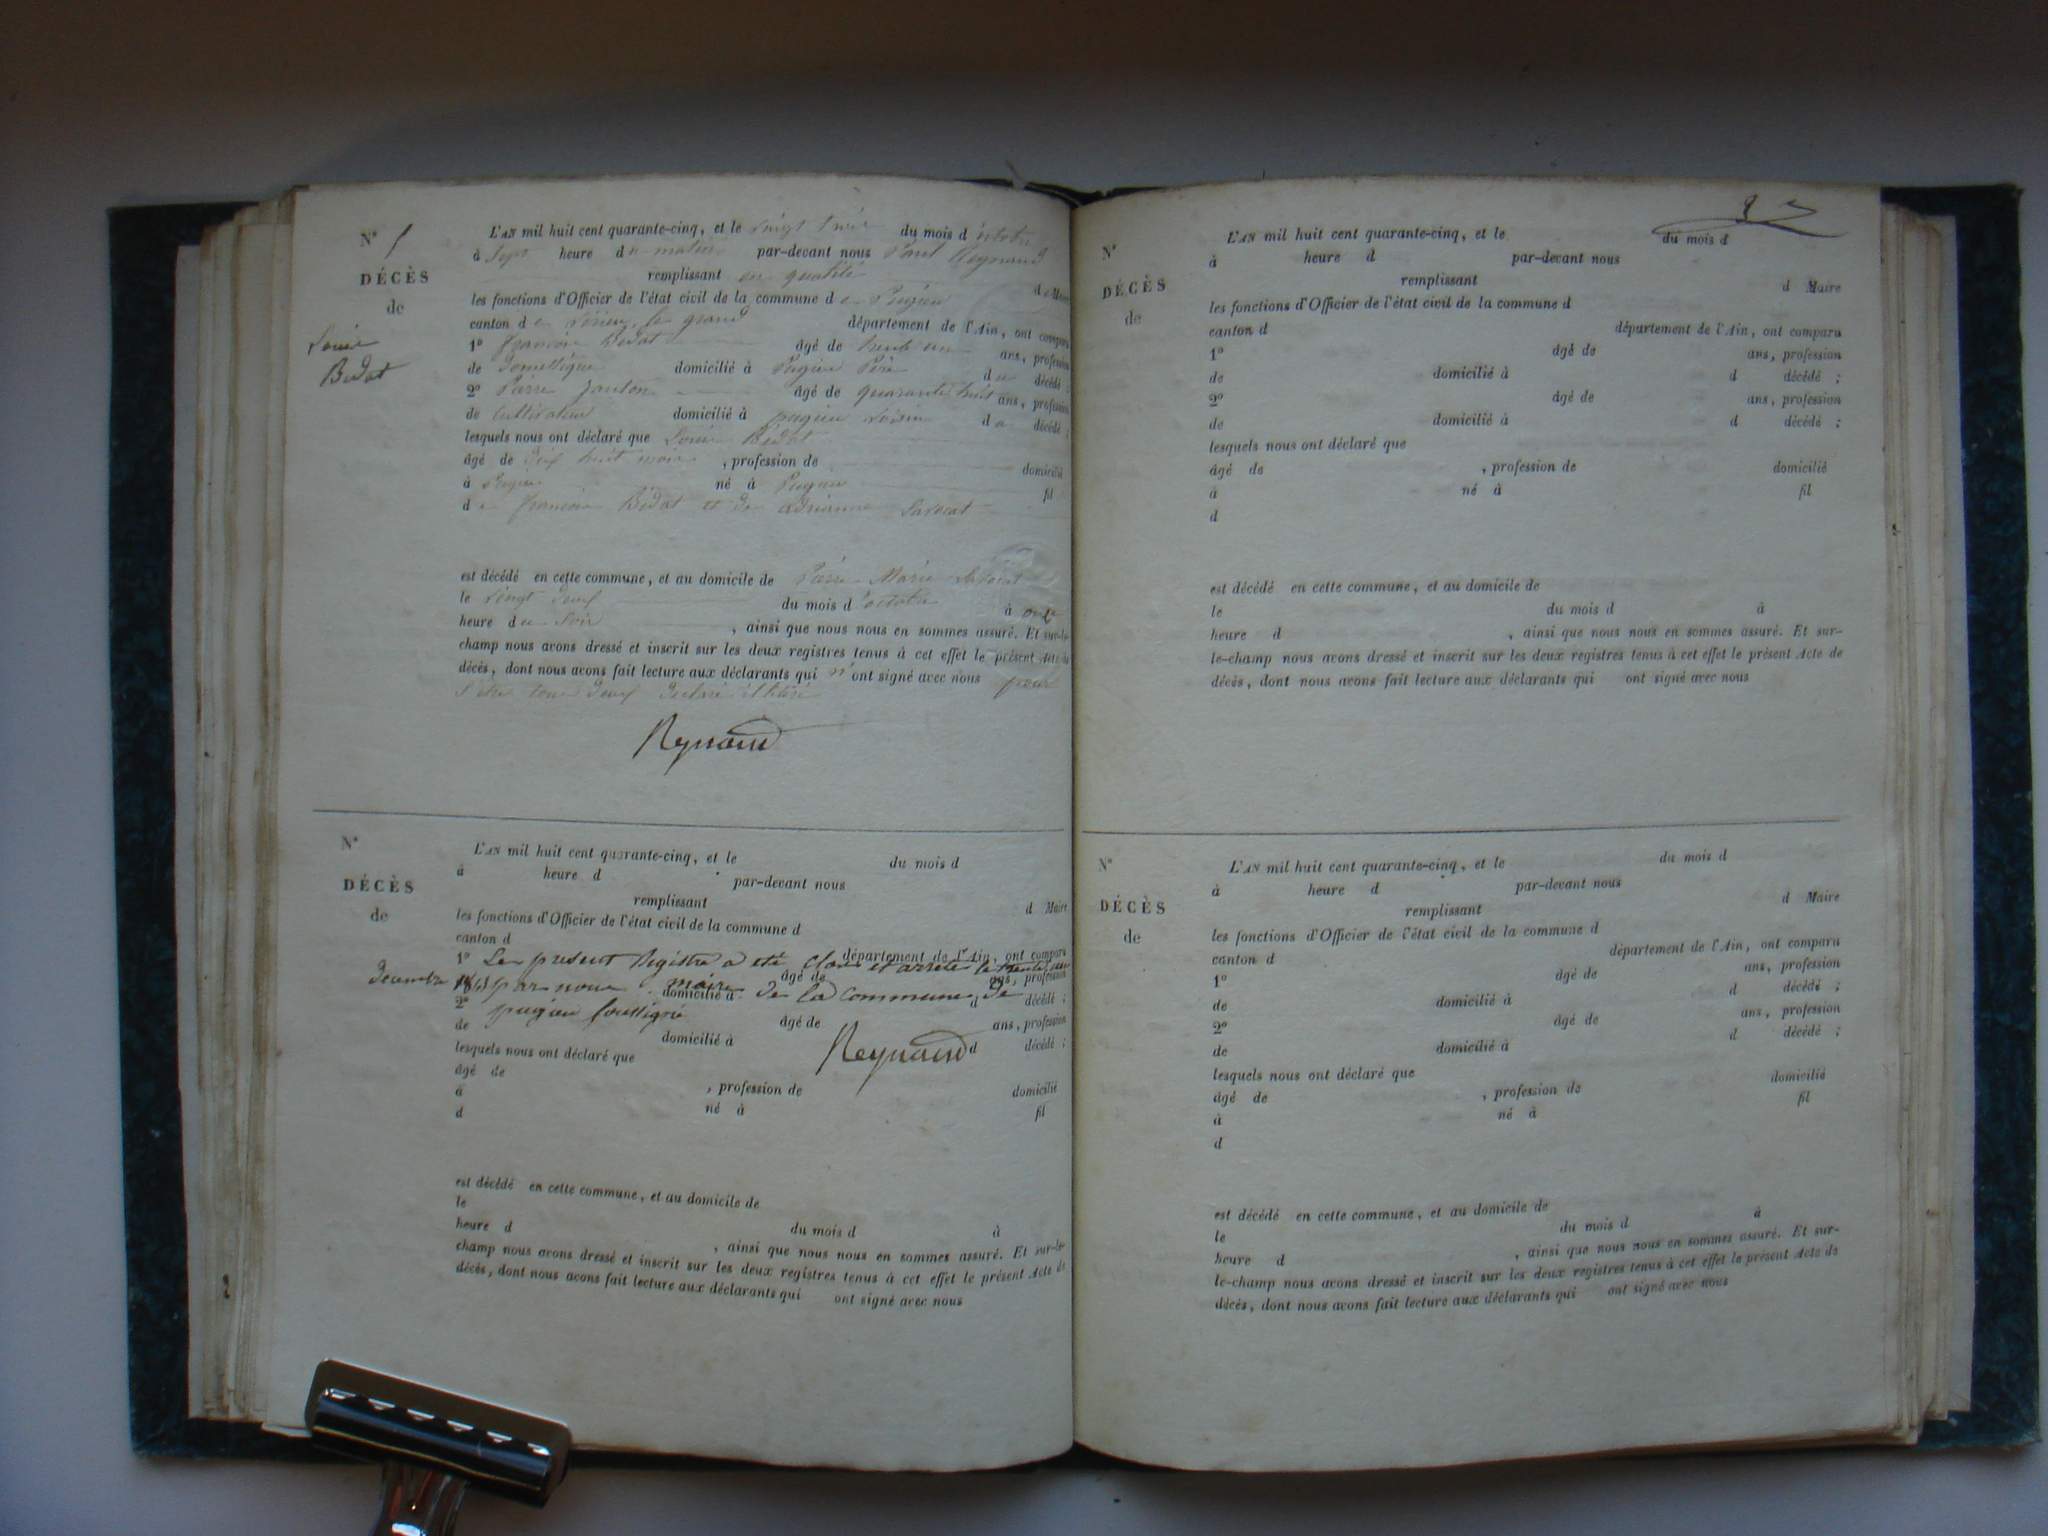 N° 5
DÉCÈS
de
Louis
Bidat
L'AN mil huit cent quarante-cinq, et le vingt trois du mois d'octobre
à Sept heure du matin par-devant nous Paul Reynaud
remplissant en qualité de Maire
les fonctions d'Officier de l'état civil de la commune de Pugieu
canton de Virieu le grand département de l'Ain, ont comparu
1° françois Bidat âgé de trente un ans, profession
de Domestique domicilié à Pugieu Père du décédé ;
2° Pierre âgé de quarante huit ans, profession
de Cultivateur domicilié à pugieu voisin du décédé ;
lesquels nous ont déclaré que Louis Bidat
âgé de dix huit mois , profession de domicilié
à Pugieu né à Pugieu fil
de françois Bidat et de adrianne Savocat
est décédé en cette commune, et au domicile de Pierre Marie Savocat
le vingt deux du mois d'octobre à onze
heure du Soir , ainsi que nous nous en sommes assuré. Et sur-le-
champ nous avons dressé et inscrit sur les deux registres tenus à cet effet le présent Acte de
décès, dont nous avons fait lecture aux déclarants qui n'ont signé avec nous pour
s'être tous deux déclaré illitéré
Reynaud
N°
DÉCÈS
de
L'AN mil huit cent quarante-cinq, et le du mois d
à heure d par-devant nous
remplissant d Maire
les fonctions d'Officier de l'état civil de la commune d
canton d département de l'Ain, ont comparu
1° âgé de ans, profession
de domicilié à d décédé ;
2° âgé de ans, profession
de domicilié à d décédé ;
Le present Registre a été clos et arrete le trente un
Decembre 1845 par nous maire de la commune de
pugieu
Reynaud
lesquels nous ont déclaré que
âgé de , profession de domicilié
à né à fil
d
est décédé en cette commune, et au domicile de
le du mois d à
heure d , ainsi que nous nous en sommes assuré. Et sur-le-
champ nous avons dressé et inscrit sur les deux registres tenus à cet effet le présent Acte de
décès, dont nous avons fait lecture aux déclarants qui ont signé avec nous
N°
DÉCÈS
de
L'AN mil huit cent quarante-cinq, et le du mois d
à heure d par-devant nous
remplissant d Maire
les fonctions d'Officier de l'état civil de la commune d
canton d département de l'Ain, ont comparu
1° âgé de ans, profession
de domicilié à d décédé ;
2° âgé de ans, profession
de domicilié à d décédé ;
lesquels nous ont déclaré que
âgé de , profession de domicilié
à né à fil
d
est décédé en cette commune, et au domicile de
le du mois d à
heure d , ainsi que nous nous en sommes assuré. Et sur-
le-champ nous avons dressé et inscrit sur les deux registres tenus à cet effet le présent Acte de
décès, dont nous avons fait lecture aux déclarants qui ont signé avec nous
N°
DÉCÈS
de
L'AN mil huit cent quarante-cinq, et le du mois d
à heure d par-devant nous
remplissant d Maire
les fonctions d'Officier de l'état civil de la commune d
canton d département de l'Ain, ont comparu
1° âgé de ans, profession
de domicilié à d décédé ;
2° âgé de ans, profession
de domicilié à d décédé ;
lesquels nous ont déclaré que
âgé de , profession de domicilié
à né à fil
d
est décédé en cette commune, et au domicile de
le du mois d à
heure d , ainsi que nous nous en sommes assuré. Et sur-
le-champ nous avons dressé et inscrit sur les deux registres tenus à cet effet le présent Acte de
décès, dont nous avons fait lecture aux déclarants qui ont signé avec nous